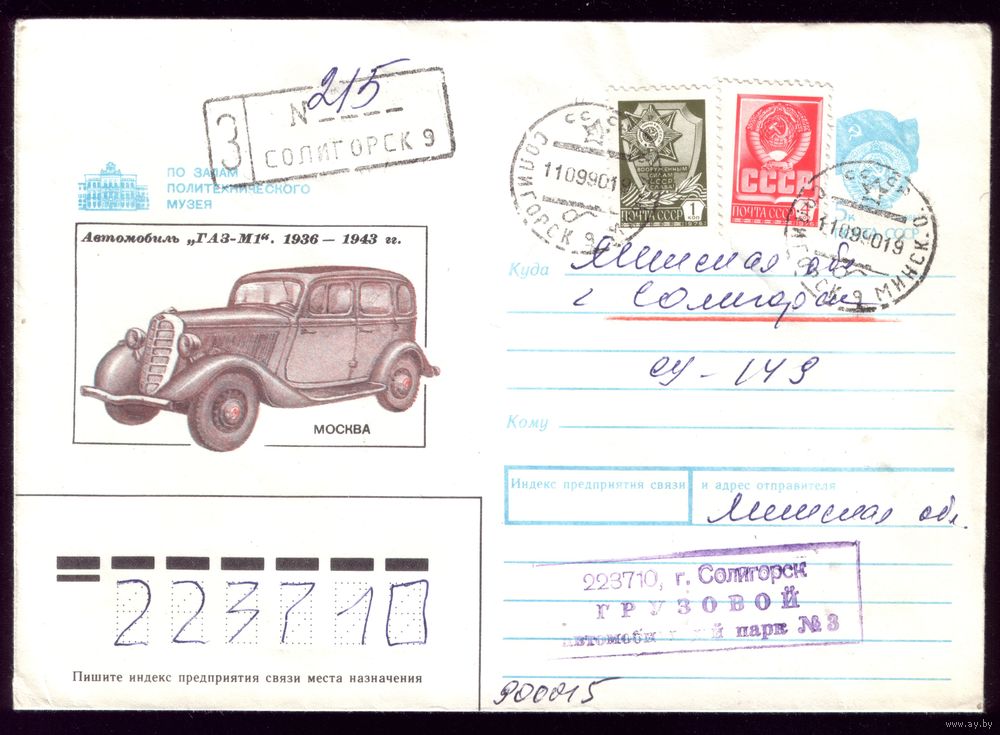 215
З
N
СОЛИГОРСК 9
ПО ЗАЛАМ
ПОЛИТЕХНИЧЕСКОГО
МУЗЕЯ
Автомобиль „ГАЗ-М1“. 1936 — 1943 гг.
МОСКВА
СОЛИГОРСК 9
11099019
ВООРУЖЕННЫМ
СИЛАМ
СССР
СЛАВА
ПОЧТА СССР 1 КОП
СССР
ПОЧТА СССР
11099019
МИНСК. О
Куда Минская обл
г Солигорск
СУ - 149
Кому
Индекс предприятия связи и адрес отправителя
Минская обл.
223710, г. Солигорск
ГРУЗОВОЙ
парк № 3
223710
Пишите индекс предприятия связи места назначения
900015
www.ay.by